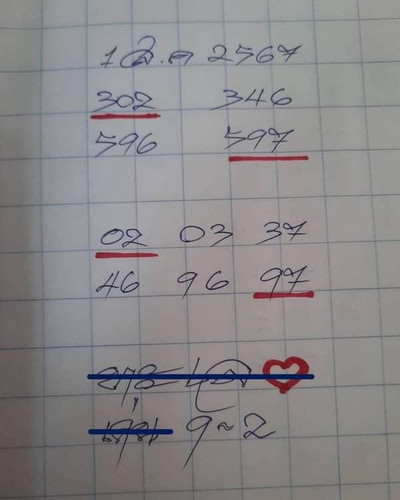 1 มิ.ค 2567
302 346
596 597
02 03 37
46 96 97
9~2